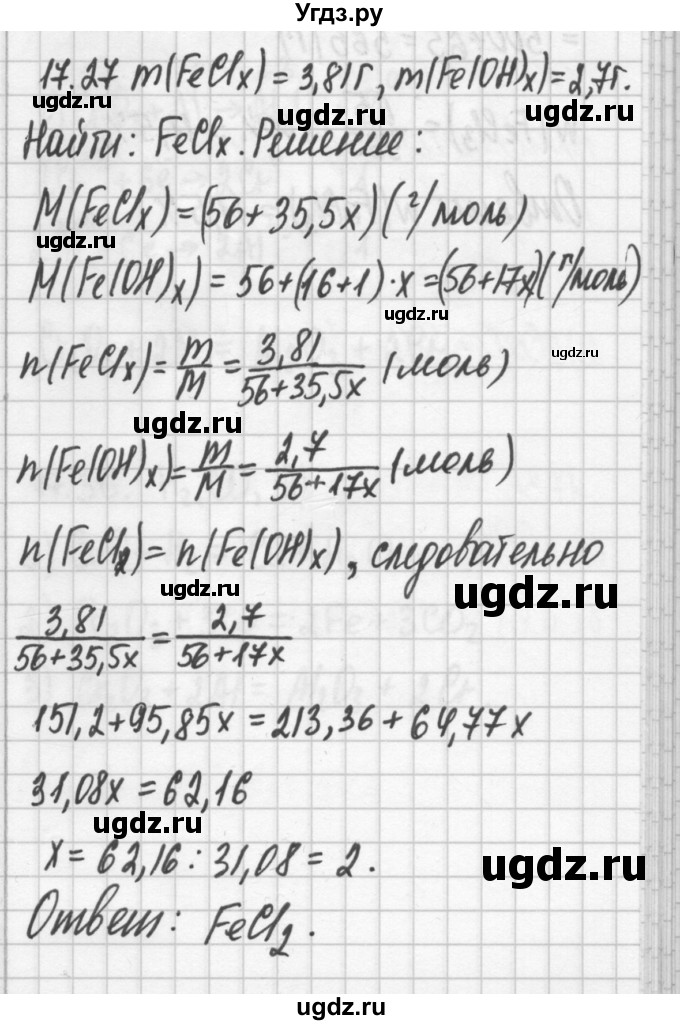 Угдз.ру
17.27 m(FeClx) = 3,81г, m(Fe(OH)x)=2,7г.
ugdz.ru
ugdz.ru
Найти: FeClx. Решение:
M(FeClx) = (56+35,5x) (г/моль)
ugdz.ru
M(Fe(OH)x) = 56+(16+1)·x = (56+17x) (г/моль)
ugdz.ru
n(FeClx) = m/M = 3,81/56+35,5x (моль)
ugdz.ru
n(Fe(OH)x) = m/M = 2,7/56+17x (моль)
n(FeCl2) = n(Fe(OH)x), следовательно
ugdz.ru
ugdz.ru
3,81/56+35,5x = 2,7/56+17x
151,2+95,85x = 213,36+64,77x
31,08x = 62,16
ugdz.ru
x = 62,16 : 31,08 = 2.
ugdz.ru
Ответ: FeCl2.
ugdz.ru